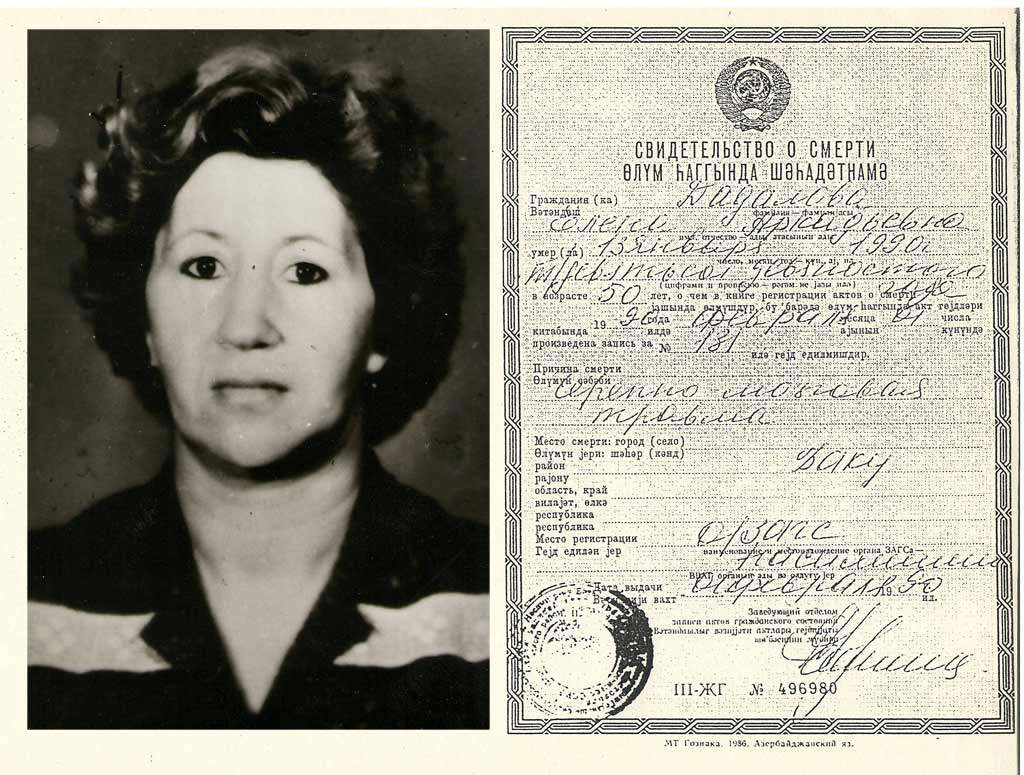 СВИДЕТЕЛЬСТВО О СМЕРТИ
ӨЛҮМ ҺАГГЫНДА ШӘҺАДӘТНАМӘ
Гражданин (ка)
Вәтәндаш
фамилия — фамилијасы
имя, отчество — ады, атасынын ады
умер (ла) 13 января 1990 г.
число, месяц, год — күн, ај, ил
тысяча девятьсот девяностого
(цифрами и прописью — рәгәм вә јазы илә)
в возрасте 50 лет, о чем в книге регистрации актов о смерти
јашында өлмүшдүр, бу барәдә өлүм һаггында акт гејдләри
китабында 19 90 года февраля месяца 21 числа
илдә ајынын күнүндә
произведена запись за № 131
илә гејд едилмишдир.
Причина смерти
Өлүмүн сәбәби
черепно мозговая
травма
Место смерти: город (село)
Өлүмүн јери: шәһәр (кәнд) Баку
район
рајону
область, край
вилајәт, өлкә
республика
республика
Место регистрации
Гејд едилән јер
наименование и местонахождение органа ЗАГСа
ВВАГ органын ады ва олдуғу јер
Дата выдачи
вахт февраля 19 90
ил.
Заведующий отделом
записи актов гражданского состояния
Вәтәндашлыг вәзијјәти актлары гејдијјаты
шө'бәсинин мүдири
III-ЖГ № 496980
МТ Гознака. 1986. Азербайджанский яз.